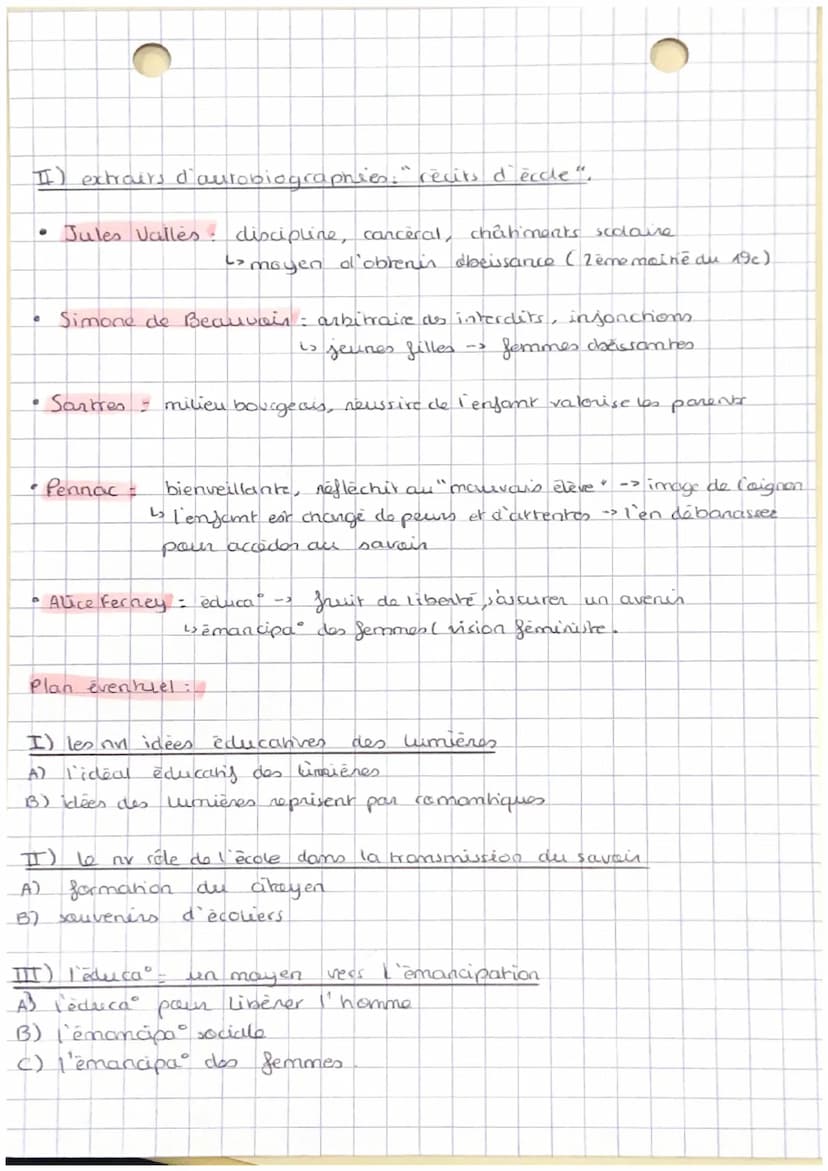 II) extraits d'autobiographies: "récits d'école".
• Jules Vallès : discipline, carcéral, châtiments scolaire
↳ moyen d'obtenir obeissance (2ème moitié du 19c)
• Simone de Beauvoir : arbitraire des interdits, injonctions
↳ jeunes filles -> femmes obéissantes
• Sartres = milieu bourgeois, réussite de l'enfant valorise les parents
• Pennac = bienveillante, réfléchir au "mauvais élève" -> image de l'oignon
↳ l'enfant est changé de peurs et d'attentes -> l'en débarasser
pour accéder au savoir
• Alice Ferney = éduca° -> fruit de liberté, s'assurer un avenir
↳ émancipa° des femmes ( vision féministe.
Plan éventuel :
I) les nv idées éducatives des lumières
A) l'idéal éducatif des lumières
B) idées des lumières reprisent par romantiques
II) le nv rôle de l'école dans la transmission du savoir
A) formation du citoyen
B) souvenirs d'écoliers
III) l'éduca° = un moyen vers l'émancipation
A) l'éduca° pour libérer l'homme
B) l'émancipa° sociale
C) l'émancipa° des femmes.